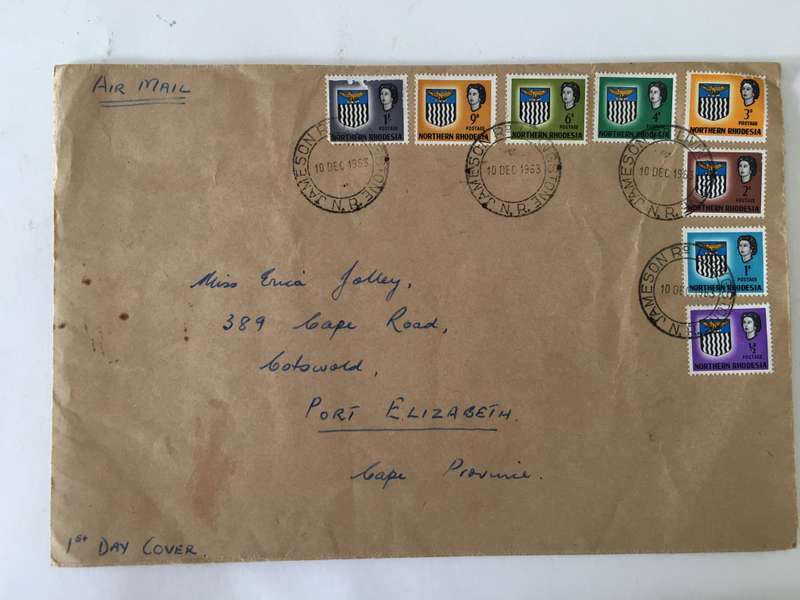 AIR MAIL
1/-
POSTAGE
NORTHERN RHODESIA
9D
POSTAGE
NORTHERN RHODESIA
6D
POSTAGE
NORTHERN RHODESIA
4D
POSTAGE
NORTHERN RHODESIA
3D
POSTAGE
NORTHERN RHODESIA
2D
POSTAGE
NORTHERN RHODESIA
1D
POSTAGE
NORTHERN RHODESIA
½D
POSTAGE
NORTHERN RHODESIA
JAMESON RD LIVINGSTONE
10 DEC 1963
N.R.
JAMESON RD LIVINGSTONE
10 DEC 1963
N.R.
JAMESON RD LIVINGSTONE
10 DEC 1963
N.R.
JAMESON RD
10 DEC 1963
N.R.
Miss Erica Jolley,
389 Cape Road,
Cotswold,
PORT ELIZABETH.
Cape Province.
1st DAY COVER.